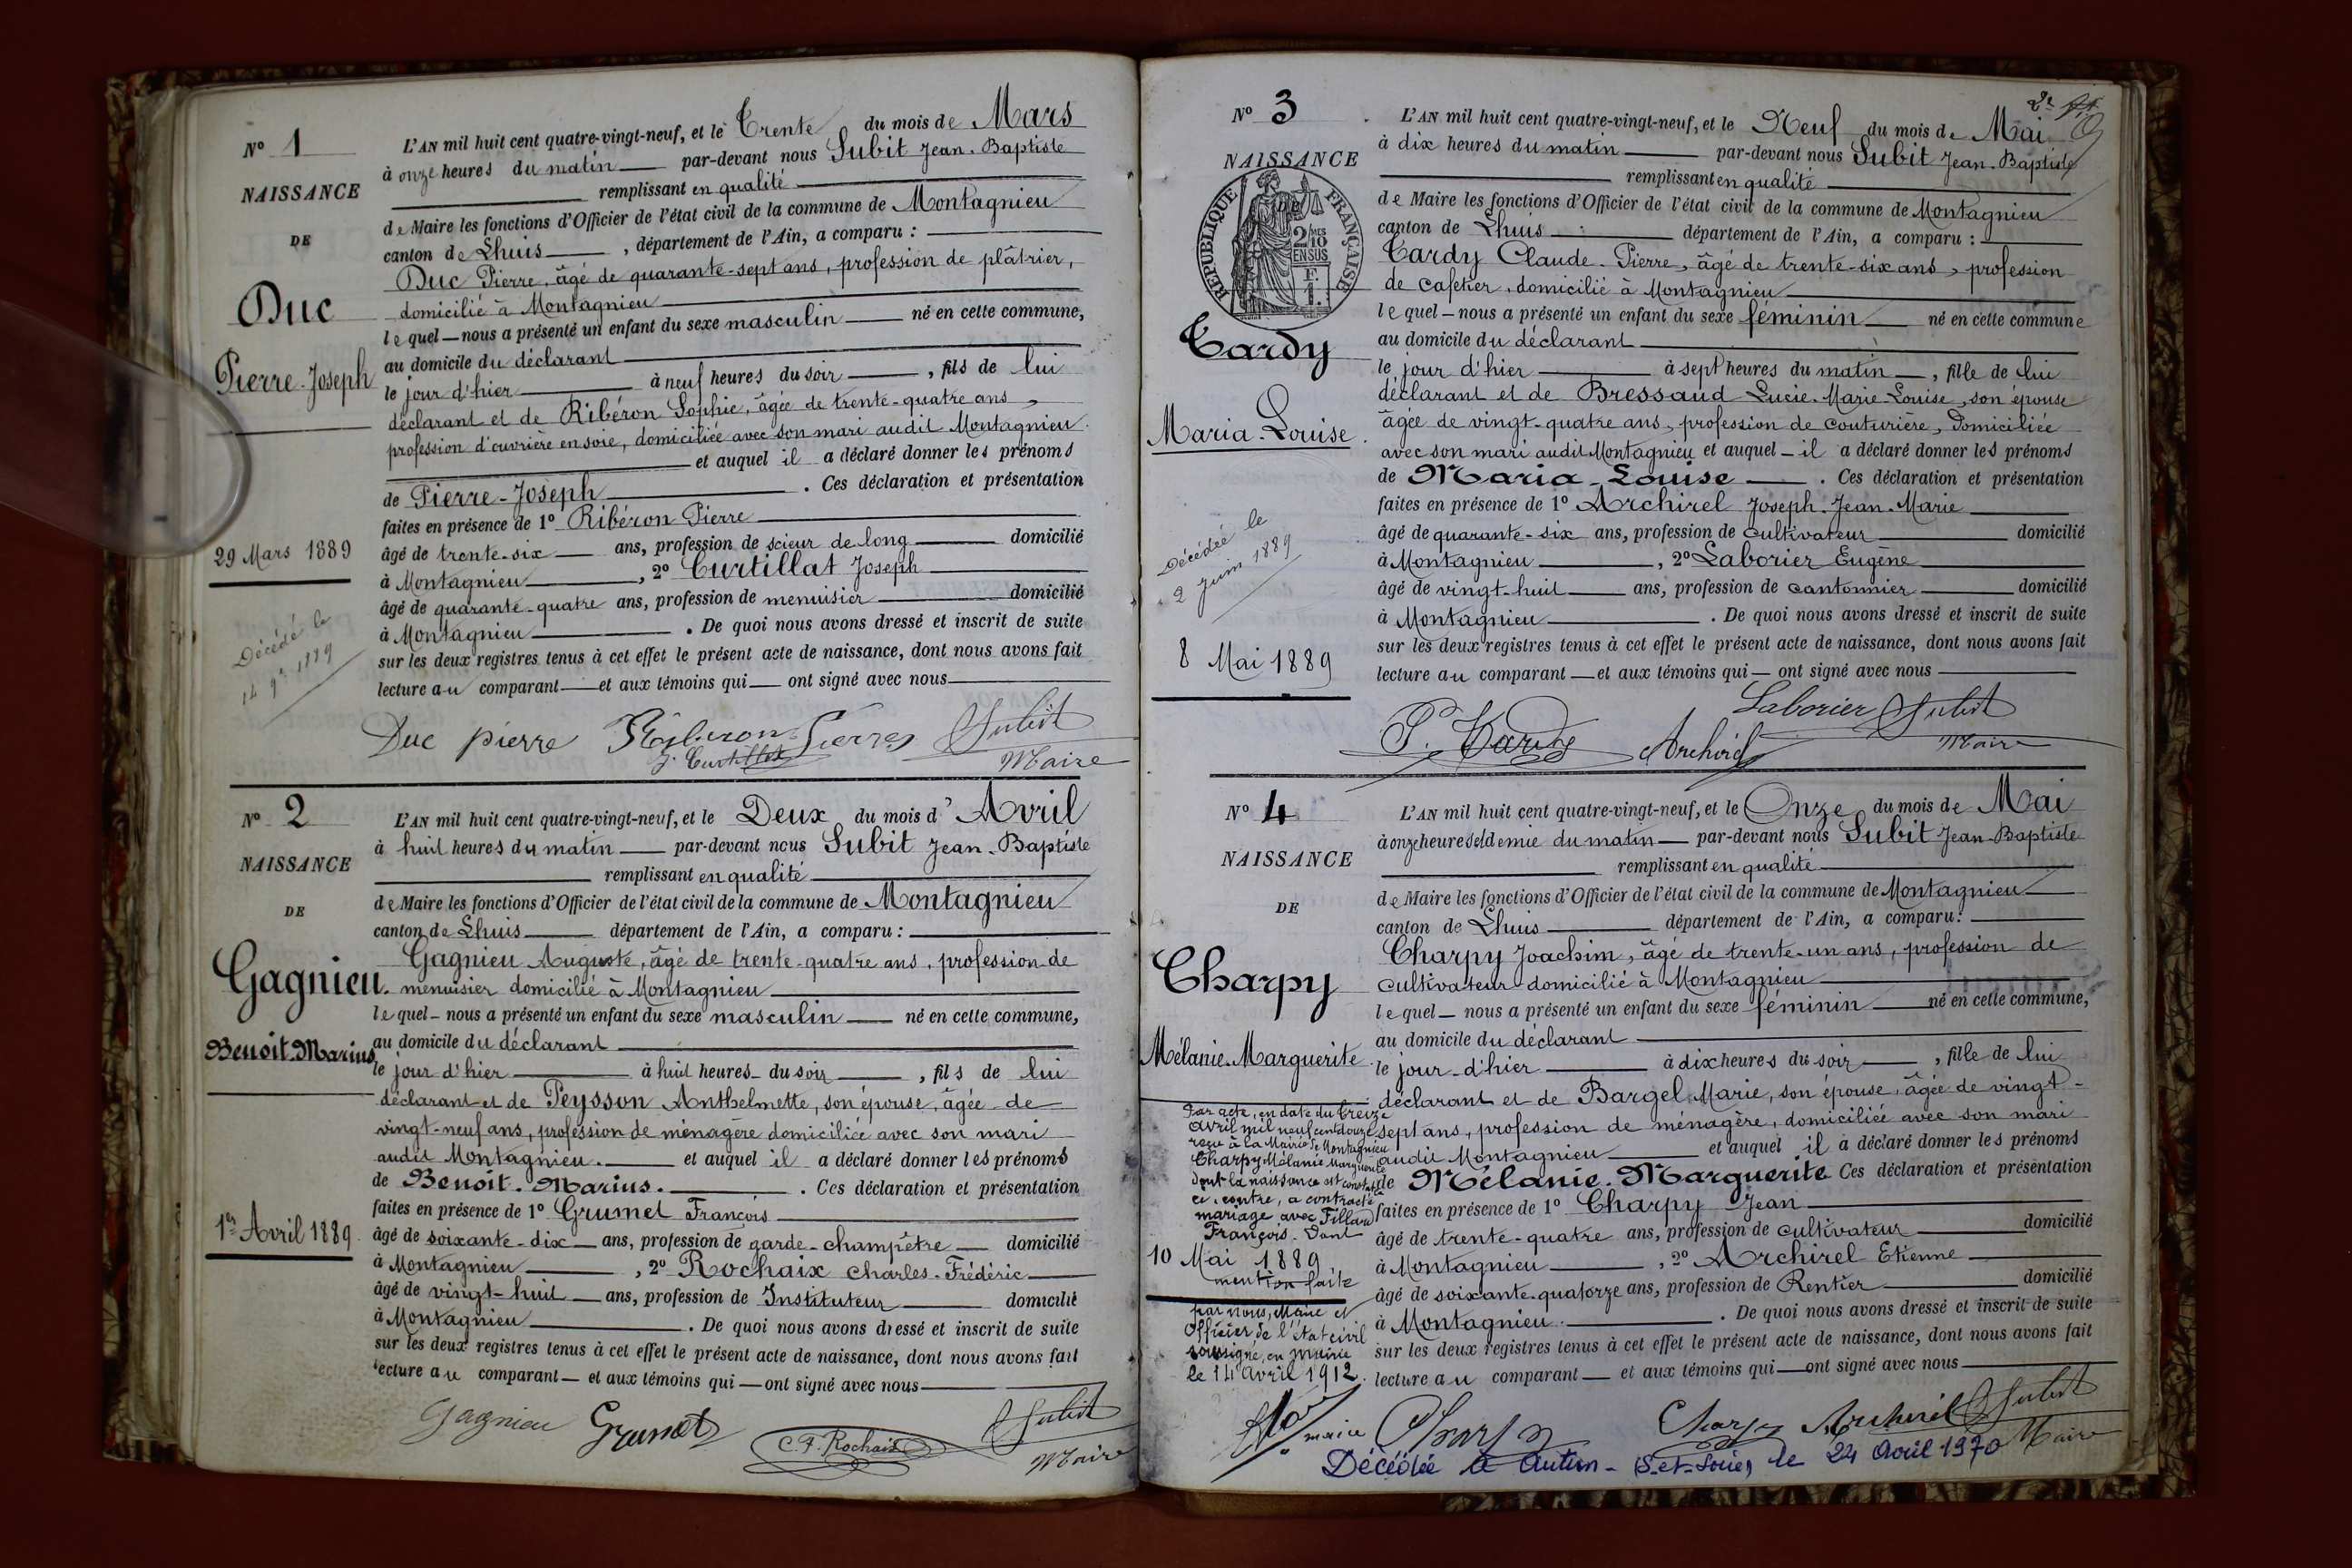 N° 1
NAISSANCE
DE
Duc
Pierre-Joseph
29 Mars 1889
Décédé le
L'AN mil huit cent quatre-vingt-neuf, et le Trente du mois de Mars
à onze heures du matin par-devant nous Subit Jean-Baptiste
remplissant en qualité
de Maire les fonctions d'Officier de l'état civil de la commune de Montagnieu
canton de Lhuis, département de l'Ain, a comparu :
Duc Pierre, âgé de quarante-sept ans, profession de plâtrier,
domicilié à Montagnieu
lequel nous a présenté un enfant du sexe masculin né en cette commune,
au domicile du déclarant
le jour d'hier à neuf heures du soir, fils de lui
déclarant et de Ribéron Sophie, âgée de trente-quatre ans,
profession d'ouvrière en soie, domiciliée avec son mari audit Montagnieu.
et auquel il a déclaré donner les prénoms
de Pierre-Joseph. Ces déclaration et présentation
faites en présence de 1° Ribéron Pierre
âgé de trente-six ans, profession de scieur de long domicilié
à Montagnieu, 2° Curtillat Joseph
âgé de quarante-quatre ans, profession de menuisier domicilié
à Montagnieu. De quoi nous avons dressé et inscrit de suite
sur les deux registres tenus à cet effet le présent acte de naissance, dont nous avons fait
lecture au comparant et aux témoins qui ont signé avec nous
Duc pierre Ribéron Pierre Subit
J. Curtillat Maire
N° 2
NAISSANCE
DE
Gagnieu.
Benoit-Marius
1er Avril 1889.
L'AN mil huit cent quatre-vingt-neuf, et le Deux du mois d'Avril
à huit heures du matin par-devant nous Subit Jean-Baptiste
remplissant en qualité
de Maire les fonctions d'Officier de l'état civil de la commune de Montagnieu
canton de Lhuis département de l'Ain, a comparu :
Gagnieu Auguste, âgé de trente-quatre ans, profession de
menuisier domicilié à Montagnieu
lequel nous a présenté un enfant du sexe masculin né en cette commune,
au domicile du déclarant
le jour d'hier à huit heures du soir, fils de lui
déclarant et de Peysson Anthelmette, son épouse, âgée de
vingt-neuf ans, profession de ménagère domiciliée avec son mari
audit Montagnieu. et auquel il a déclaré donner les prénoms
de Benoit-Marius. Ces déclaration et présentation
faites en présence de 1° Grumet François
âgé de soixante-dix ans, profession de garde-champêtre domicilié
à Montagnieu, 2° Rochaix Charles-Frédéric
âgé de vingt-huit ans, profession de Instituteur domicilié
à Montagnieu. De quoi nous avons dressé et inscrit de suite
sur les deux registres tenus à cet effet le présent acte de naissance, dont nous avons fait
lecture au comparant et aux témoins qui ont signé avec nous
Gagnieu Grumet C.F. Rochaix Subit
Maire
2e
N° 3
NAISSANCE
RÉPUBLIQUE FRANÇAISE
2/10 MES
EN SUS
F.
1.
Tardy
Maria-Louise.
Décédée le
2 Juin 1889
8 Mai 1889
L'AN mil huit cent quatre-vingt-neuf, et le Neuf du mois de Mai
à dix heures du matin par-devant nous Subit Jean-Baptiste
remplissant en qualité
de Maire les fonctions d'Officier de l'état civil de la commune de Montagnieu
canton de Lhuis département de l'Ain, a comparu :
Tardy Claude-Pierre, âgé de trente-six ans, profession
de cafetier, domicilié à Montagnieu
lequel nous a présenté un enfant du sexe féminin né en cette commune
au domicile du déclarant
le jour d'hier à sept heures du matin, fille de lui
déclarant et de Bressaud Lucie-Marie-Louise, son épouse
âgée de vingt-quatre ans, profession de couturière, Domiciliée
avec son mari audit Montagnieu et auquel il a déclaré donner les prénoms
de Maria-Louise. Ces déclaration et présentation
faites en présence de 1° Archirel Joseph-Jean-Marie
âgé de quarante-six ans, profession de cultivateur domicilié
à Montagnieu, 2° Laborier Eugène
âgé de vingt-huit ans, profession de cantonnier domicilié
à Montagnieu. De quoi nous avons dressé et inscrit de suite
sur les deux registres tenus à cet effet le présent acte de naissance, dont nous avons fait
lecture au comparant et aux témoins qui ont signé avec nous
Laborier Subit
P. Tardy Archirel Maire
N° 4
NAISSANCE
DE
Charpy
Mélanie-Marguerite
Par acte, en date du treize
avril mil neuf cent douze
reçu à la Mairie de Montagnieu
Charpy Mélanie Marguerite
dont la naissance est constatée
ci-contre, a contracté
mariage avec Fillard
François. Dont
10 Mai 1889
mention faite
par nous, Maire et
Officier de l'état civil
soussigné, en Mairie
le 14 avril 1912.
maire
L'AN mil huit cent quatre-vingt-neuf, et le Onze du mois de Mai
à onze heures et demie du matin par-devant nous Subit Jean-Baptiste
remplissant en qualité
de Maire les fonctions d'Officier de l'état civil de la commune de Montagnieu
canton de Lhuis département de l'Ain, a comparu :
Charpy Joachim, âgé de trente-un ans, profession de
cultivateur domicilié à Montagnieu
lequel nous a présenté un enfant du sexe féminin né en cette commune,
au domicile du déclarant
le jour d'hier à dix heures du soir, fille de lui
déclarant et de Bargel Marie, son épouse, âgée de vingt-
sept ans, profession de ménagère, domiciliée avec son mari
audit Montagnieu et auquel il a déclaré donner les prénoms
de Mélanie-Marguerite Ces déclaration et présentation
faites en présence de 1° Charpy Jean
âgé de trente-quatre ans, profession de cultivateur domicilié
à Montagnieu, 2° Archirel Etienne
âgé de soixante-quatorze ans, profession de Rentier domicilié
à Montagnieu. De quoi nous avons dressé et inscrit de suite
sur les deux registres tenus à cet effet le présent acte de naissance, dont nous avons fait
lecture au comparant et aux témoins qui ont signé avec nous
Charpy Charpy Archirel Subit
Maire
Décédée à Autun - (S.-et-Loire) le 24 Avril 1970